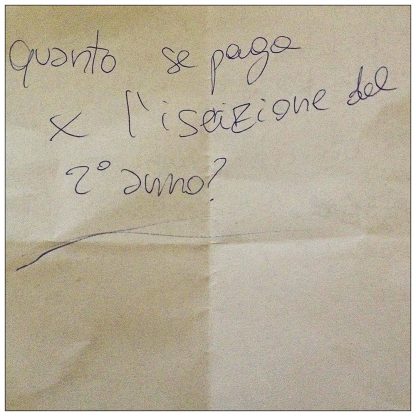 Quanto se paga
x l'iscizione del
2° anno?